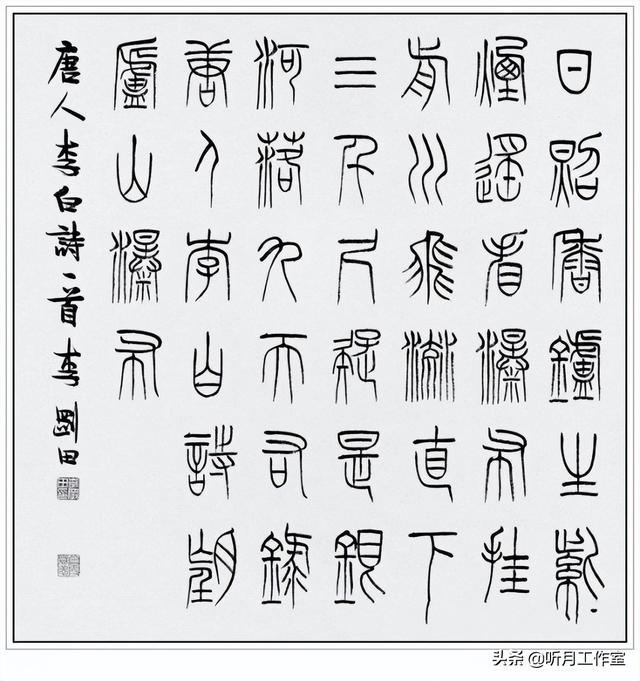 日照香鑪生紫
煙遙看瀑布挂
前川飛流直下
三千尺疑是銀
河落九天右錄
唐人李白詩望
廬山瀑布
唐人李白詩一首 李剛田
头条 @听月工作室